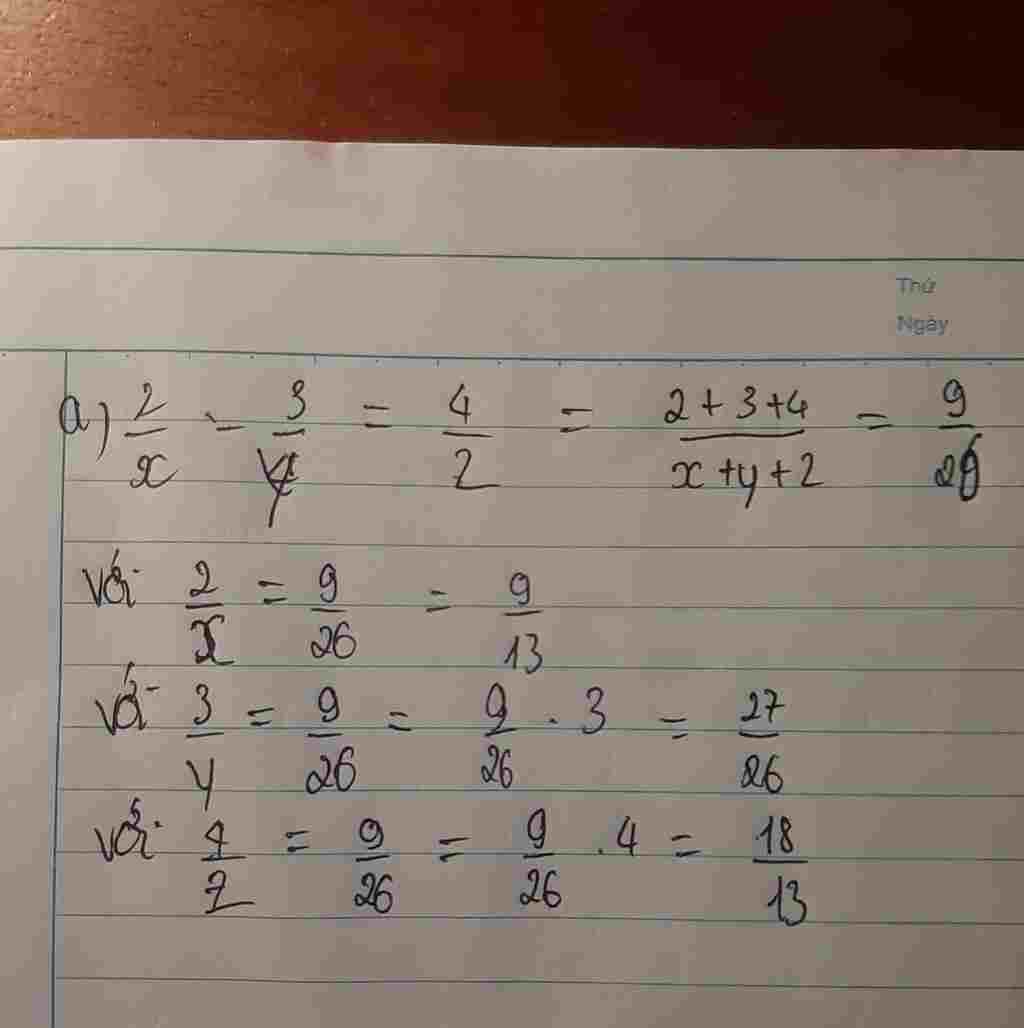 Thứ
Ngày
a) 2/x - 3/y = 4/z = 2+3+4/x+y+z = 9/26
với 2/x = 9/26 = 9/13
với 3/y = 9/26 = 9/26 . 3 = 27/26
với 4/z = 9/26 = 9/26 . 4 = 18/13